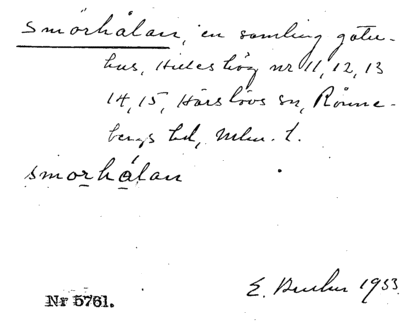 Smörhålan, en samling gatu-
hus, Hilleshög nr 11, 12, 13
14, 15, Härslövs sn, Rönne-
bergs hd, Mlm. l.
smörhålan
E. 1933
Nr 5761.